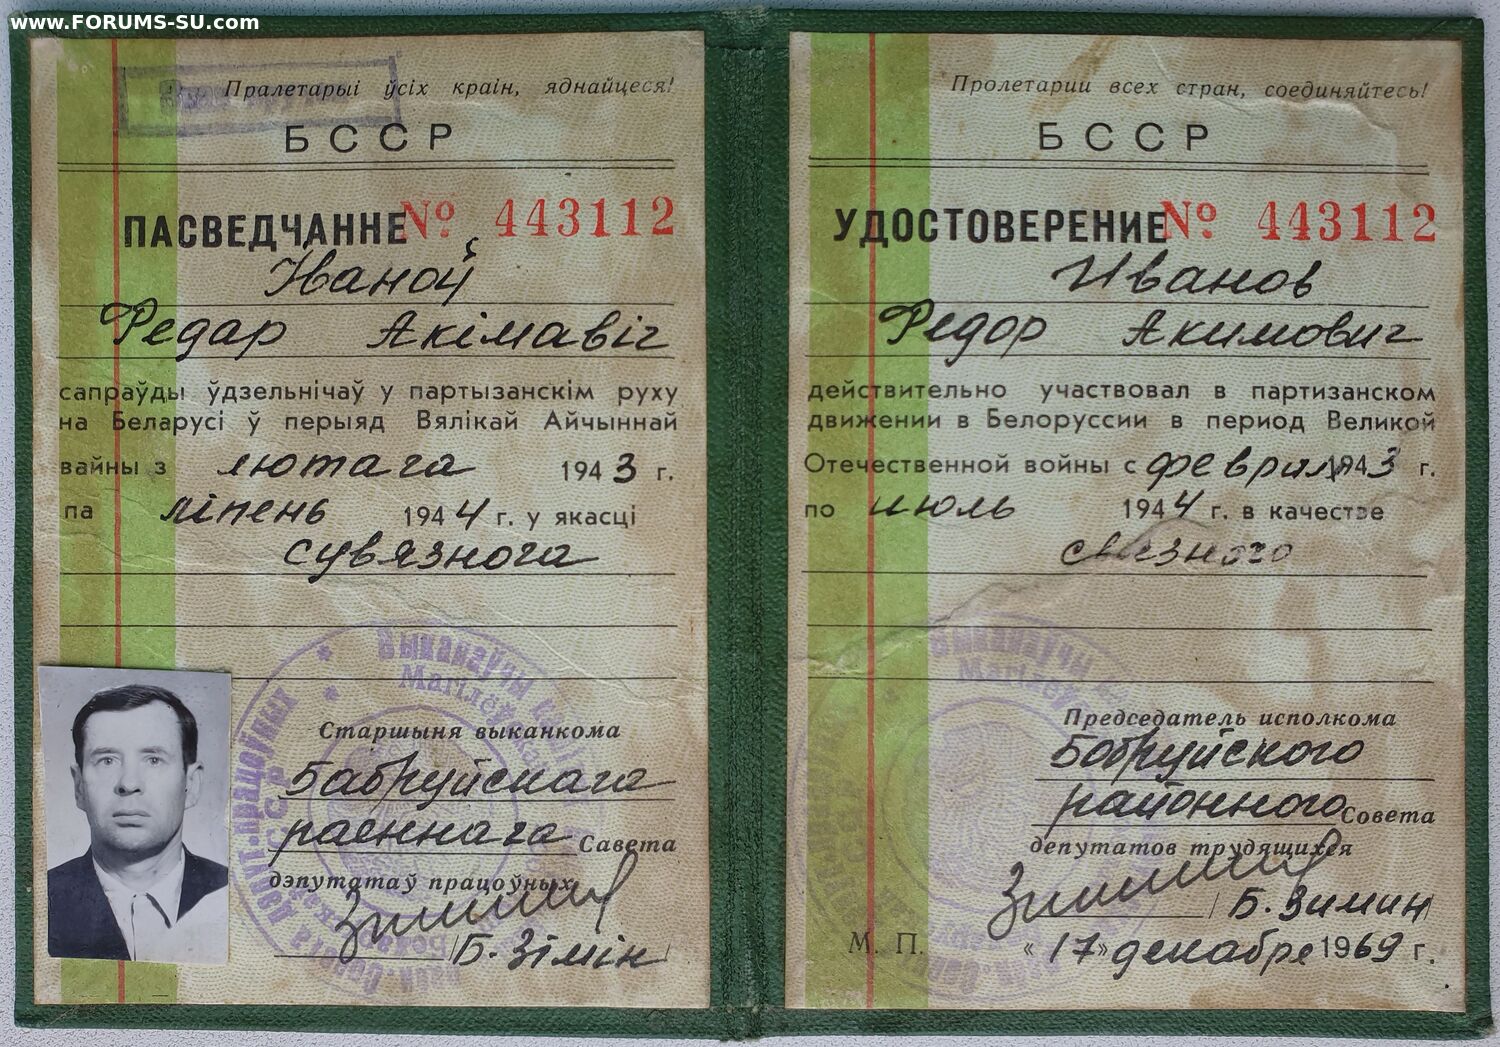 www.FORUMS-SU.com
Пралетарыі ўсіх краін, яднайцеся!
БССР
ПАСВЕДЧАННЕ № 443112
Іваноў
Федар Акімавіч
сапраўды ўдзельнічаў у партызанскім руху
на Беларусі ў перыяд Вялікай Айчыннай
вайны з лютага 1943 г.
па ліпень 1944 г. у якасці
сувязнога
Старшыня выканкома
Бабруйскага
раённага Савета
дэпутатаў працоўных
Б. Зімін
Выканаўчы
Магілёўская
дэпут. працоўных
БССР
Пролетарии всех стран, соединяйтесь!
БССР
УДОСТОВЕРЕНИЕ № 443112
Иванов
Федор Акимович
действительно участвовал в партизанском
движении в Белоруссии в период Великой
Отечественной войны с февраля 1943 г.
по июль 1944 г. в качестве
связного
Председатель исполкома
Бобруйского
районного Совета
депутатов трудящихся
Б. Зимин
М. П. «17» декабря 1969 г.
Выканаўчы